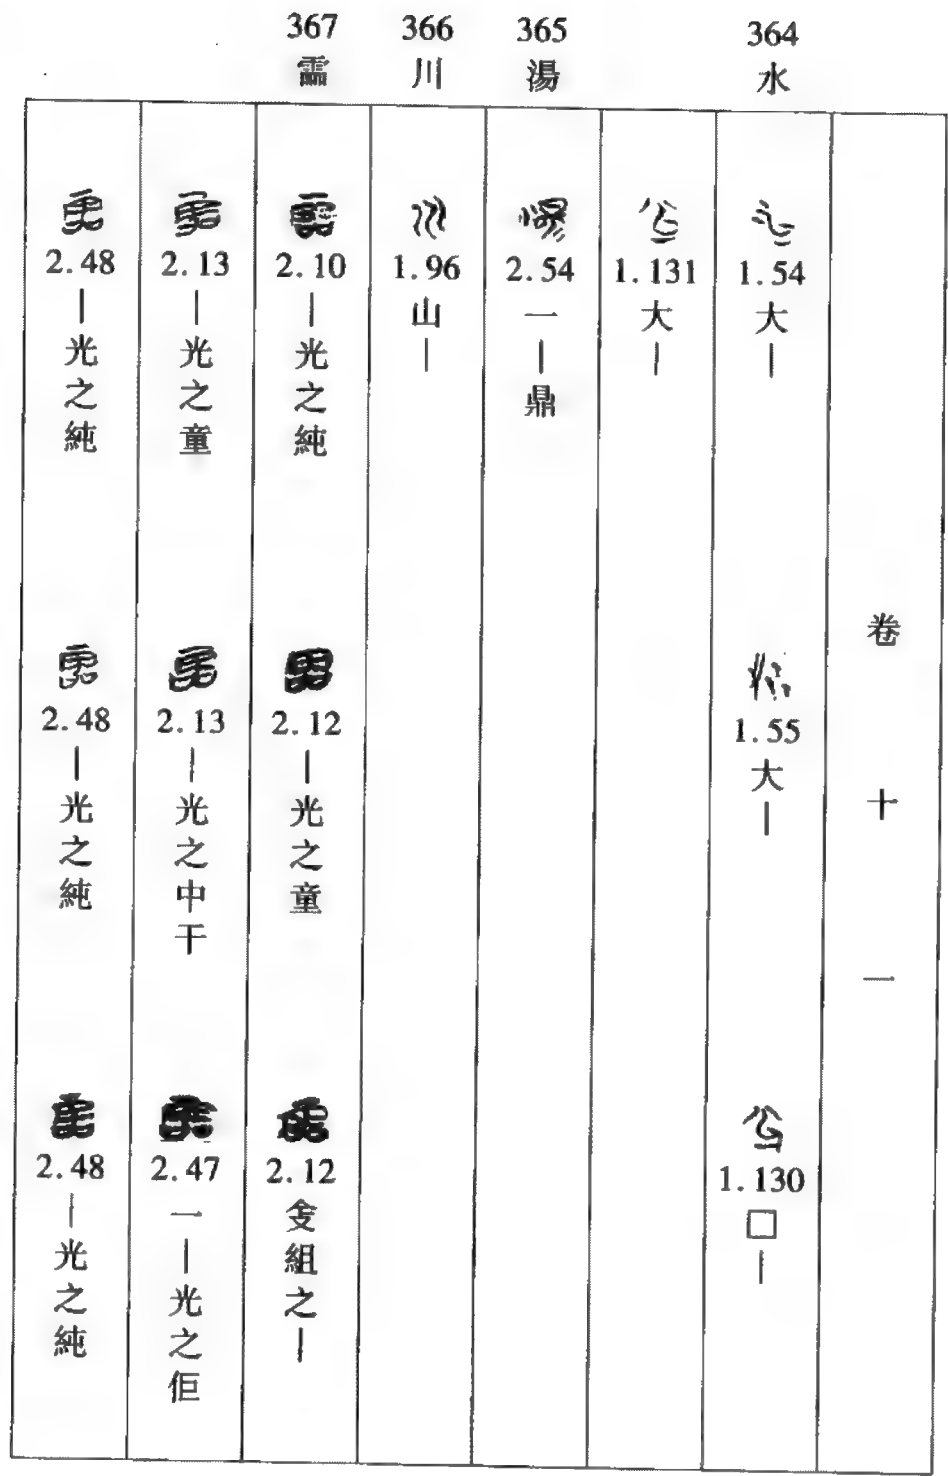 卷十一
364
水
1.54
大—
1.55
大—
1.130
□—
1.131
大—
365
湯
2.54
一—鼎
366
川
1.96
山—
367
霝
2.10
—光之純
2.12
—光之童
2.12
組之—
2.13
—光之童
2.13
—光之中干
2.47
一—光之佢
2.48
—光之純
2.48
—光之純
2.48
—光之純